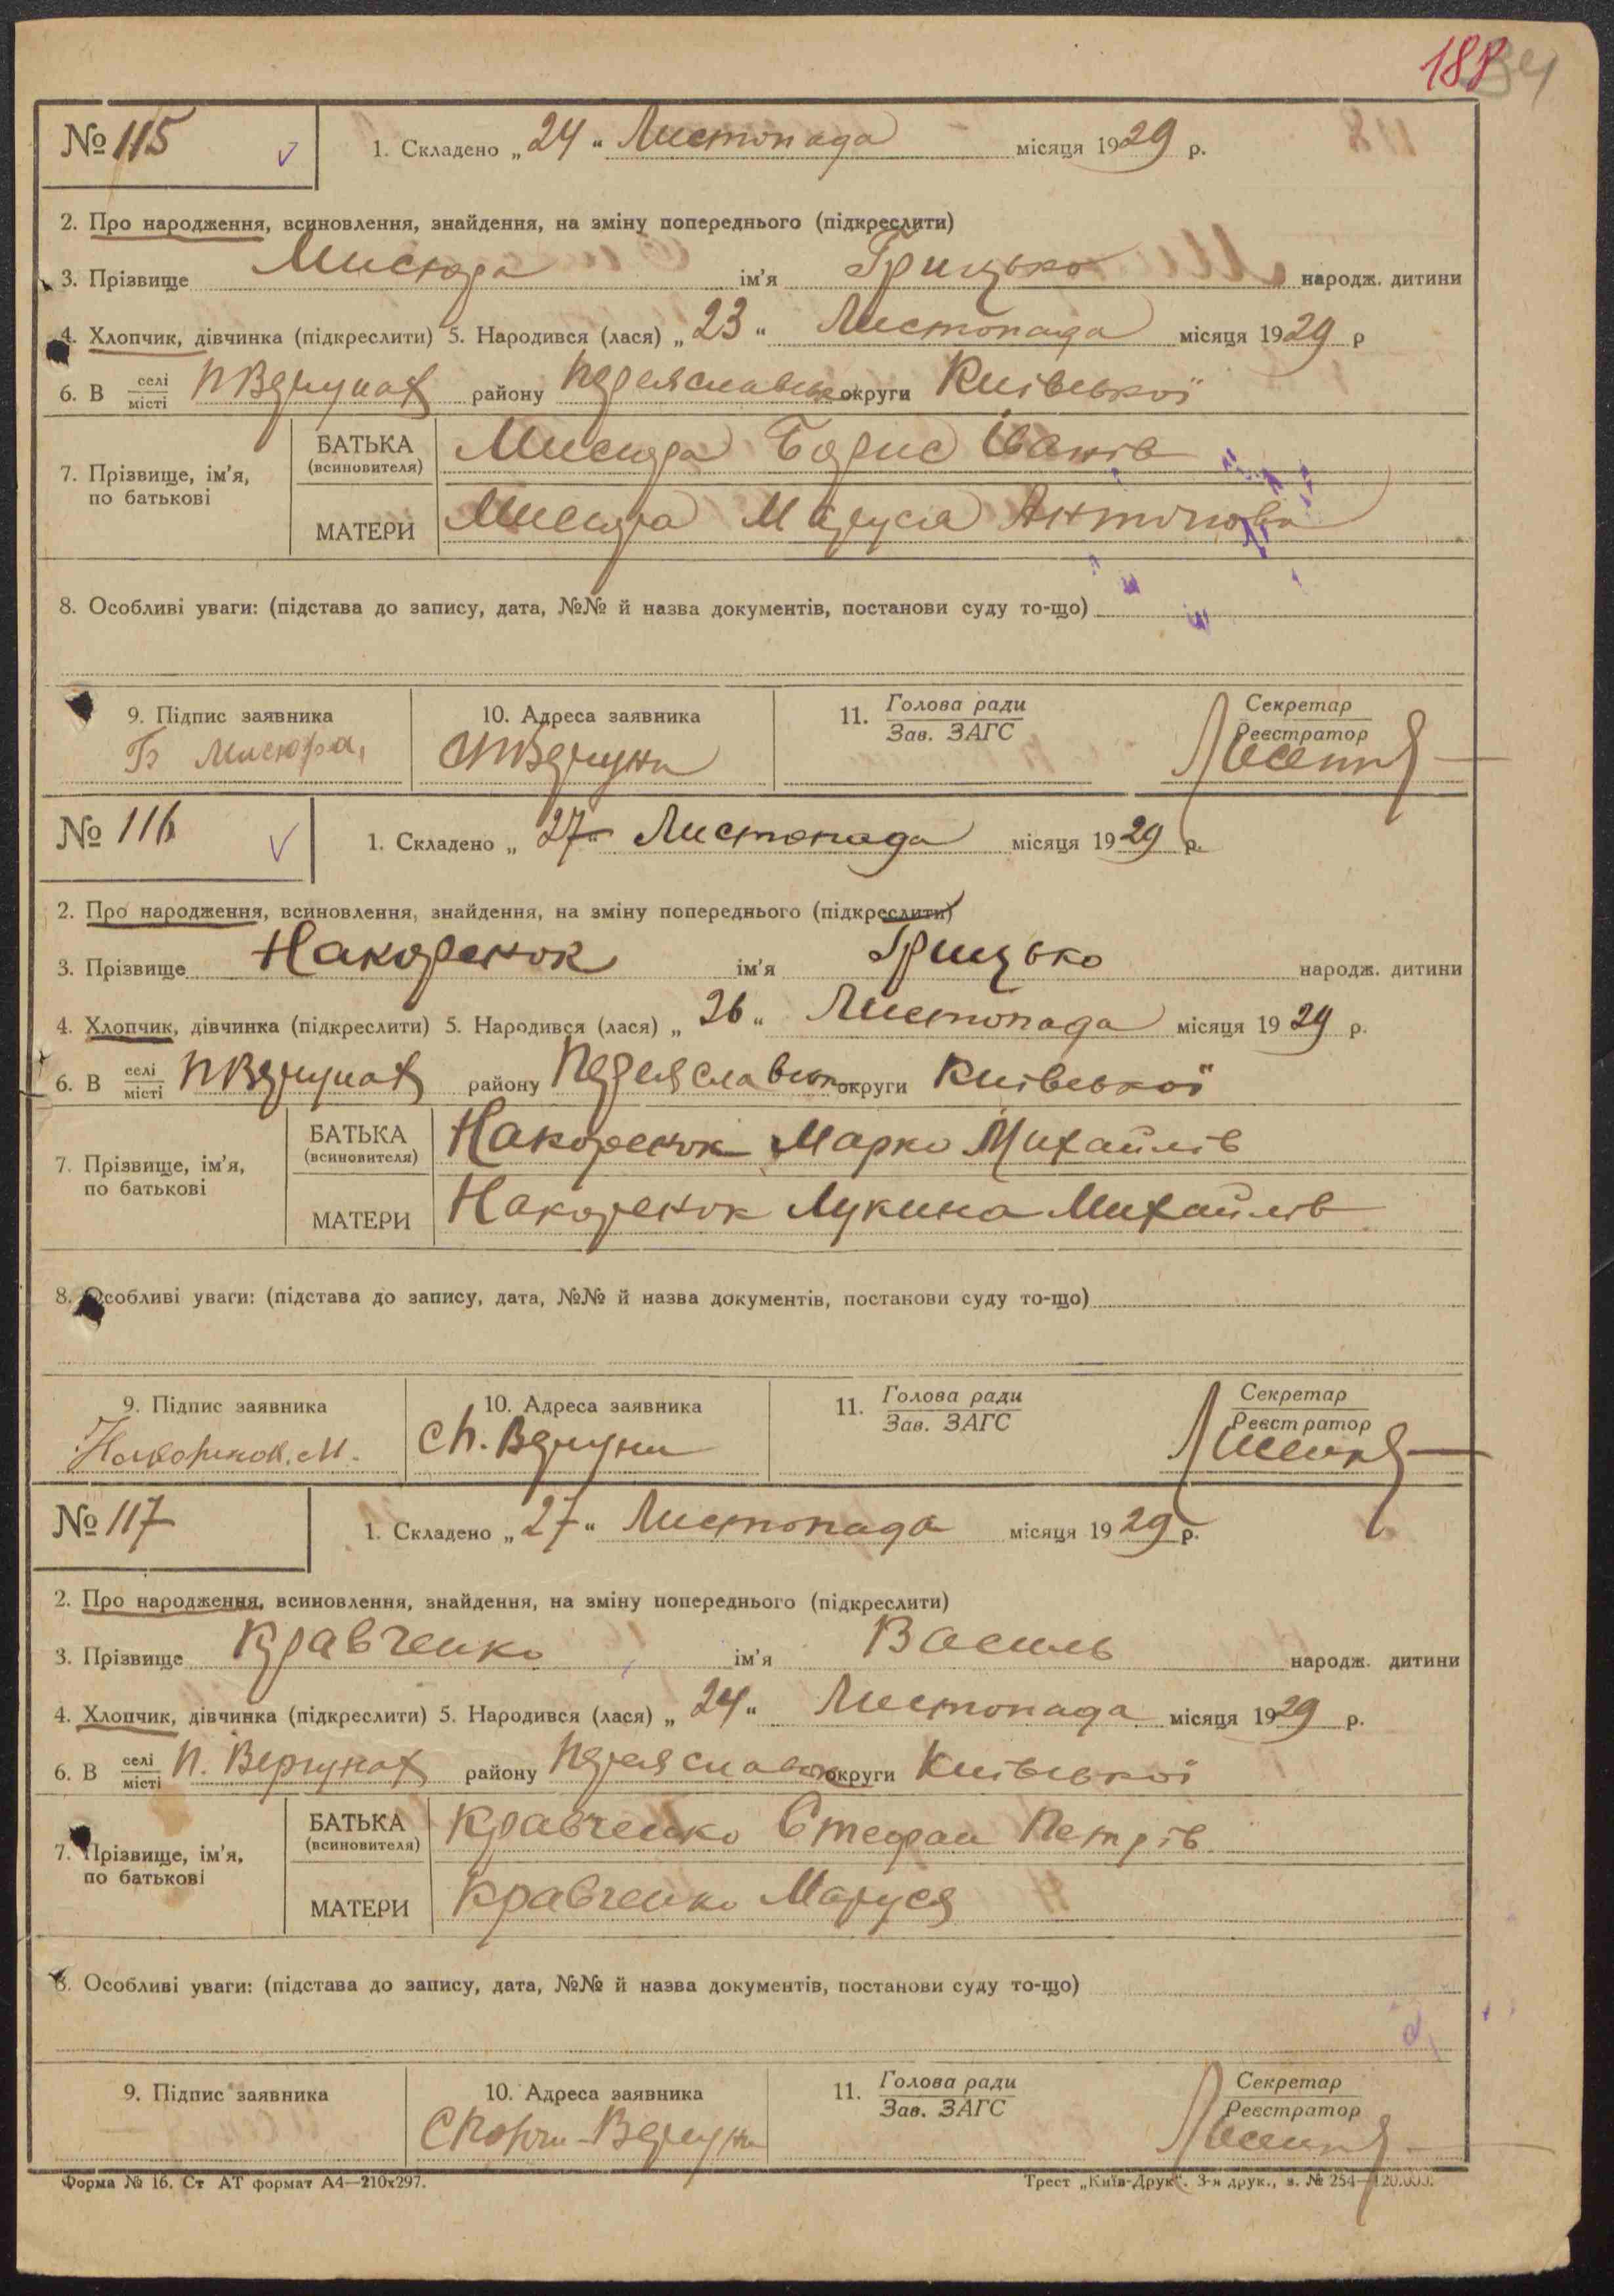 188
№ 115 1. Складено „24“ Листопада місяця 1929 р.
2. Про народження, всиновлення, знайдення, на зміну попереднього (підкреслити)
3. Прізвище Мисюра ім'я Грицько народж. дитини
4. Хлопчик, дівчинка (підкреслити) 5. Народився (лася) „23“ Листопада місяця 1929 р
6. В селі місті ПВергунах району Переяславськ округи Київської
7. Прізвище, ім'я, по батькові
БАТЬКА (всиновителя) Мисюра Борис Іванів
МАТЕРИ Мисюра Маруся Антонова
8. Особливі уваги: (підстава до запису, дата, №№ й назва документів, постанови суду то-що)
9. Підпис заявника 10. Адреса заявника 11. Голова ради Зав. ЗАГС Секретар Реєстратор
Б Мисюра, СПВергуни
№ 116 1. Складено „27“ Листопада місяця 1929 р.
2. Про народження, всиновлення, знайдення, на зміну попереднього (підкреслити)
3. Прізвище Накоренок ім'я Грицько народж. дитини
4. Хлопчик, дівчинка (підкреслити) 5. Народився (лася) „26“ Листопада місяця 1929 р.
6. В селі місті ПВергунах району Переяславськ округи Київської
7. Прізвище, ім'я, по батькові
БАТЬКА (всиновителя) Накоренок Марко Михайлів
МАТЕРИ Накоренок Лукина Михайлів
8. Особливі уваги: (підстава до запису, дата, №№ й назва документів, постанови суду то-що)
9. Підпис заявника 10. Адреса заявника 11. Голова ради Зав. ЗАГС Секретар Реєстратор
Накоренок. М. С П. Вергуни
№ 117 1. Складено „27“ Листопада місяця 1929 р.
2. Про народження, всиновлення, знайдення, на зміну попереднього (підкреслити)
3. Прізвище Кравченко ім'я Василь народж. дитини
4. Хлопчик, дівчинка (підкреслити) 5. Народився (лася) „24“ Листопада місяця 1929 р.
6. В селі місті П. Вергунах району Переяславськ округи Київської
7. Прізвище, ім'я, по батькові
БАТЬКА (всиновителя) Кравченко Стефан Петрів
МАТЕРИ Кравченко Маруся
8. Особливі уваги: (підстава до запису, дата, №№ й назва документів, постанови суду то-що)
9. Підпис заявника 10. Адреса заявника 11. Голова ради Зав. ЗАГС Секретар Реєстратор
Вергуни
Форма № 16. Ст АТ формат А4—210х297. Трест „Київ-Друк“. 3-я друк., з. № 254—120.000.